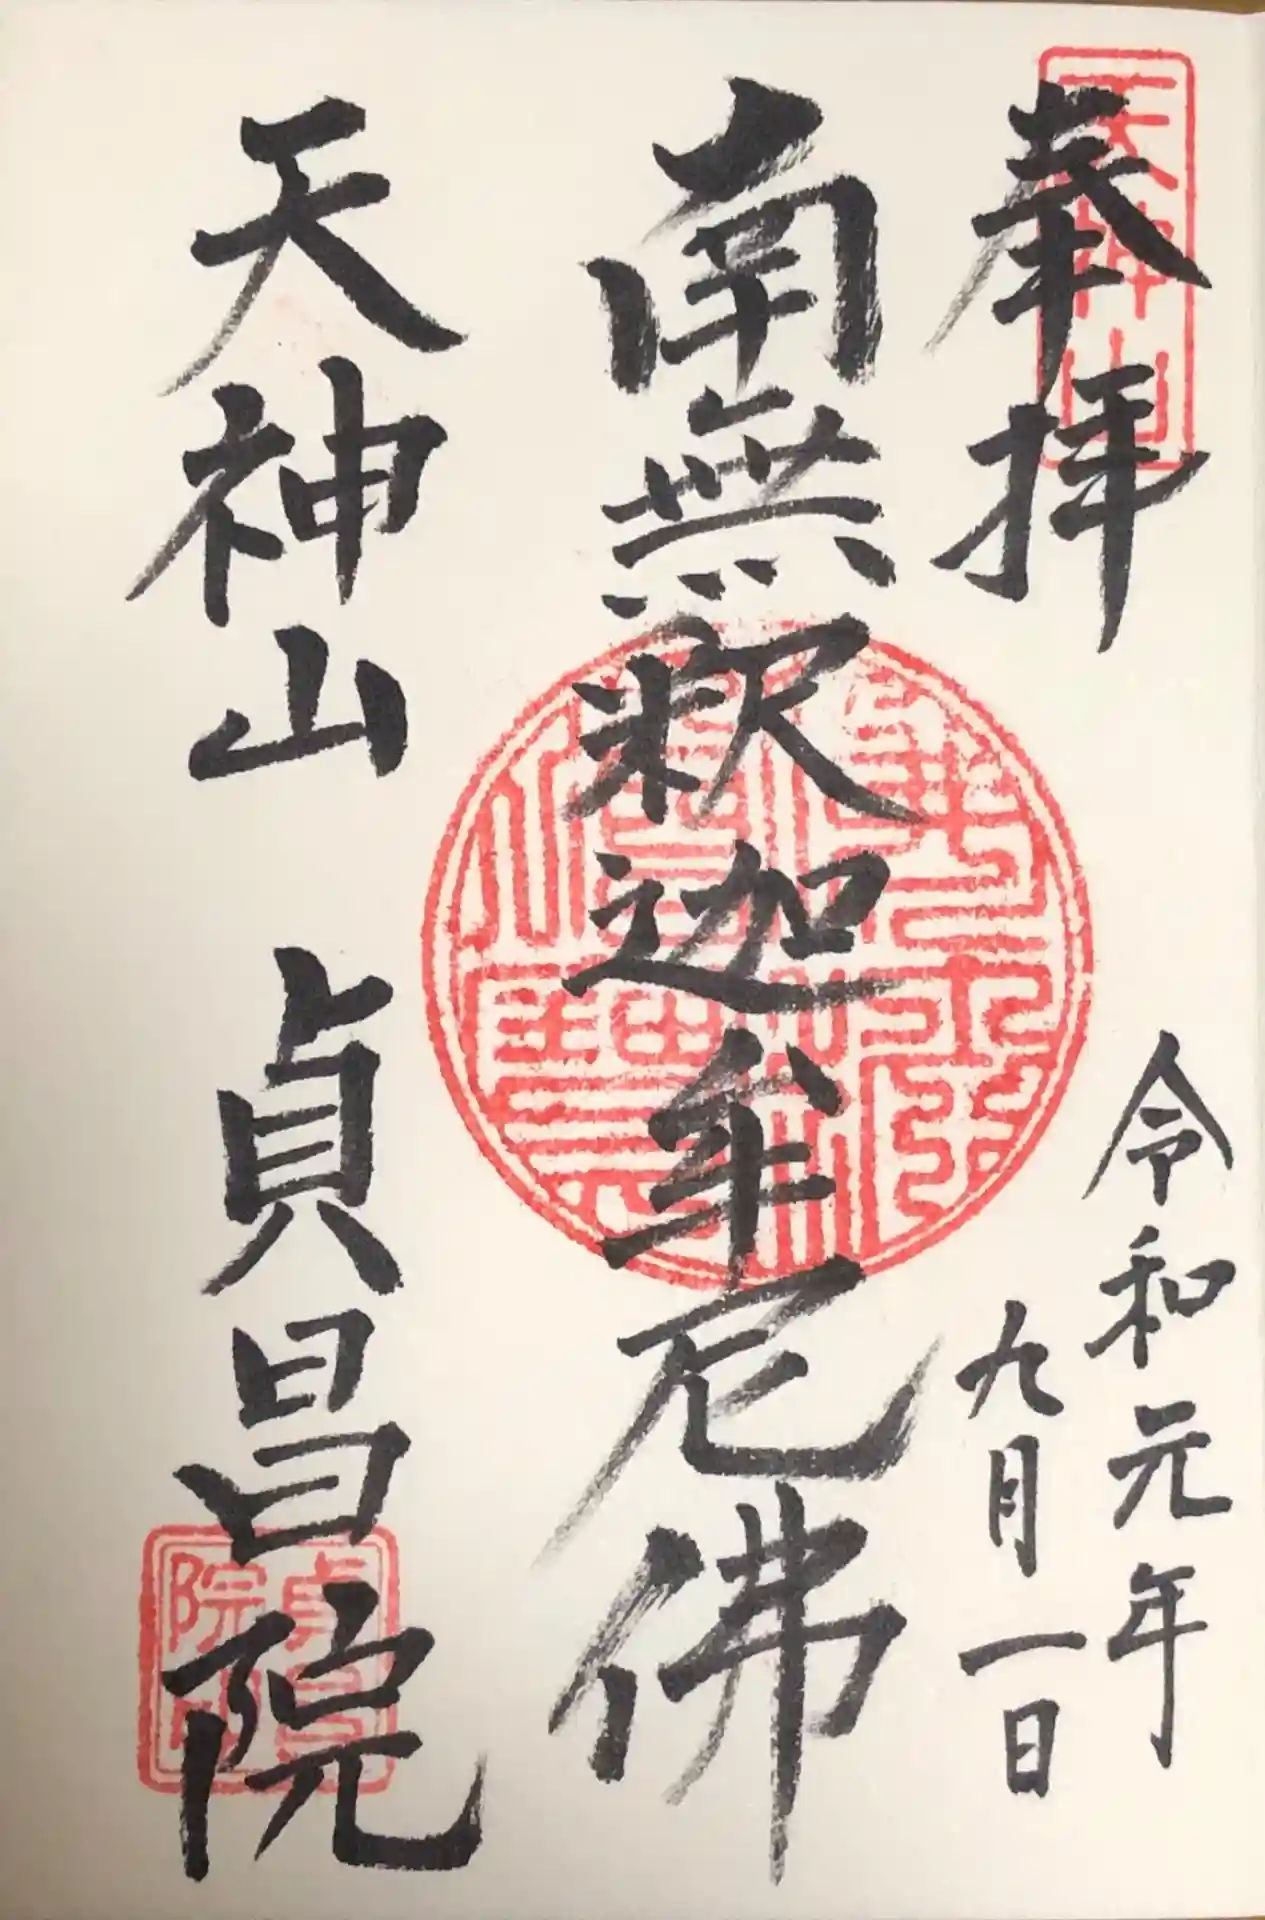 天神山
奉拝
令和元年
九月一日
南無釈迦牟尼佛
天神山 貞昌院
貞昌院